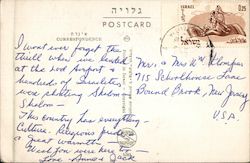 גלויה
POSTCARD
CORRESPONDENCE
ISRAEL
0.25
I wont ever forget the
thrill when we landed
at the Lod Airport &
hundreds of Israelites
were shouting Sholom -
Sholom -
This country has everything
Culture - Religious pride
& great warmth
Wish you were here too -
Love Anna & Jack
Mr. & Mrs W. Klompus
715 Schoolhouse Lane
Bound Brook, New Jersey
U.S.A.